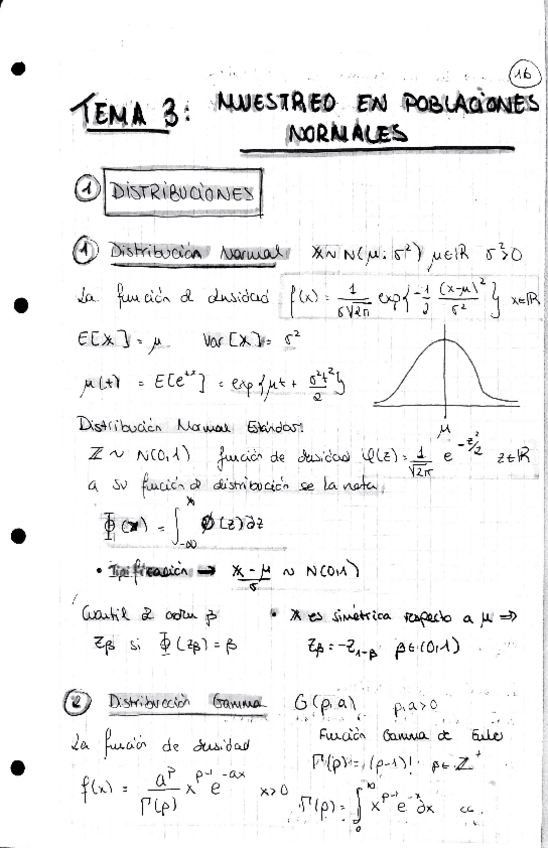 16
TEMA 3: MUESTREO EN POBLACIONES
NORMALES
1 DISTRIBUCIONES
1 Distribución Normal X ~ N(μ; σ²) μ∈ℝ σ²>0
La función d densidad f(x) = 1/(σ√2π) exp{-1/2 (x-μ)²/σ²} x∈ℝ
E[X] = μ Var[X] = σ²
μ(t) = E[e^{tx}] = exp{μt + σ²t²/2}
μ
Distribución Normal Estándar:
Z ~ N(0,1) función de densidad φ(z) = 1/√2π e^{-z²/2} z∈ℝ
a su función d distribución se la nota,
Φ(x) = ∫_{-∞}^{x} φ(z)∂z
• Tipificación → X-μ/σ ~ N(0,1)
Cuantil d orden β • X es simétrica respecto a μ ⇒
Zβ si Φ(Zβ) = β Zβ = -Z_{1-β} β∈(0,1)
2 Distribución Gamma G(p,a) p,a>0
Función Gamma de Euler
La función de densidad Γ(p) = (p-1)! p∈ℤ⁺
f(x) = a^p/Γ(p) x^{p-1} e^{-ax} x>0 Γ(p) = ∫_0^∞ x^{p-1} e^{-x} ∂x